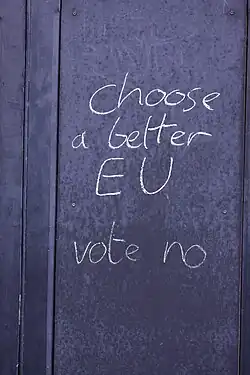 choose
a better
EU
vote no